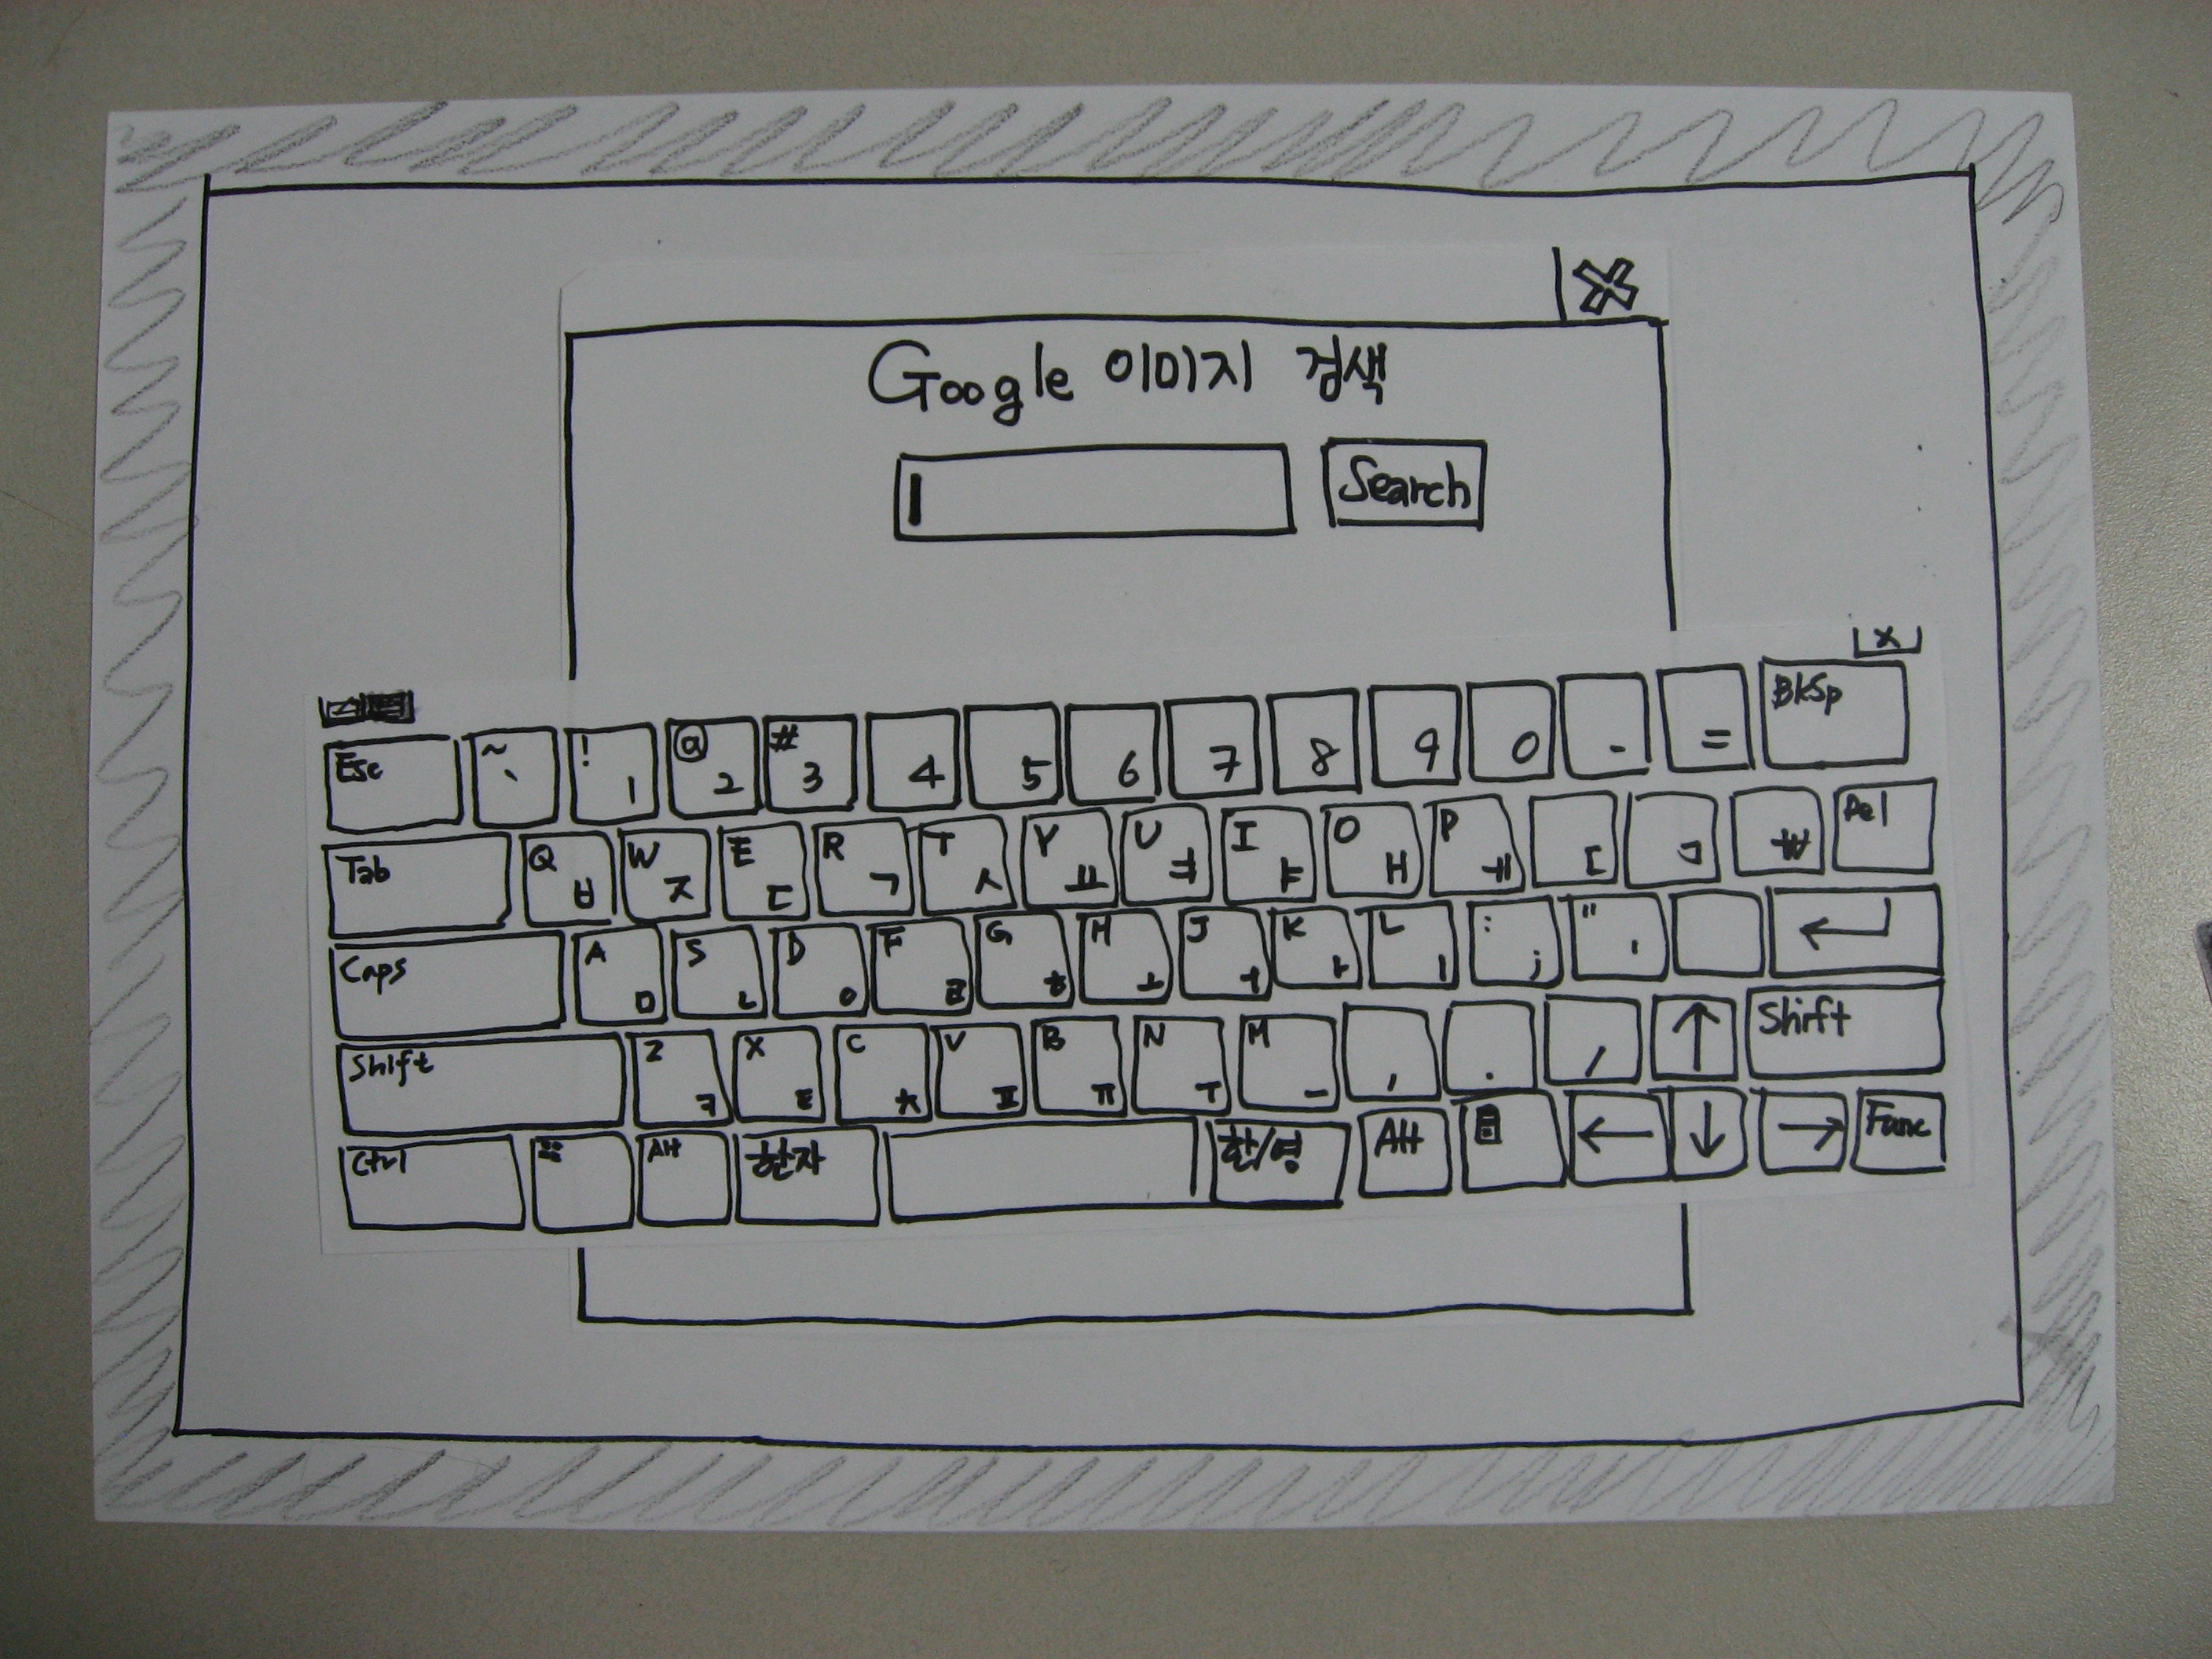 Google 이미지 검색
Search
X
Esc ~ ` ! 1 @ 2 # 3 4 5 6 7 8 9 0 - = BkSp
Tab Q ㅂ W ㅈ E ㄷ R ㄱ T ㅅ Y ㅛ U ㅕ I ㅑ O ㅐ P ㅔ [ ] ₩ Del
Caps A ㅁ S ㄴ D ㅇ F ㄹ G ㅎ H ㅗ J ㅓ K ㅏ L ㅣ : ; " ' ←
Shift Z ㅋ X ㅌ C ㅊ V ㅍ B ㅠ N ㅜ M ㅡ , . / ↑ Shift
Ctrl Alt 한자 한/영 Alt ← ↓ → Func